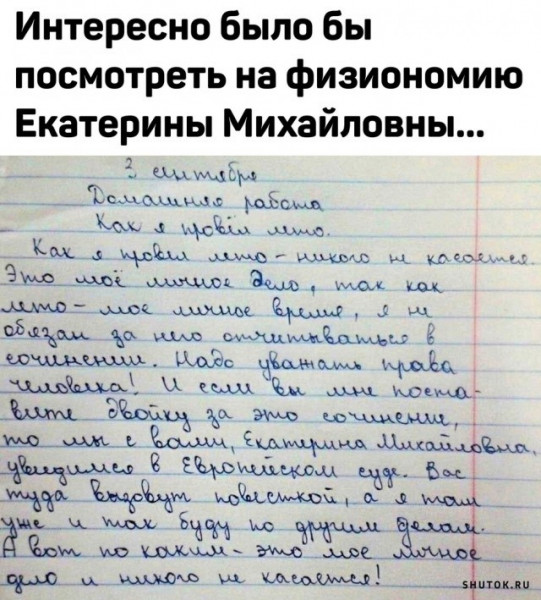 Интересно было бы
посмотреть на физиономию
Екатерины Михайловны...
3 сентября
Домашняя работа
Как я провёл лето.
Как я провёл лето – никого не касается.
Это моё личное дело, так как
лето – мое личное время, я не
обязан за него отчитываться в
сочинении. Надо уважать права
человека! И если вы мне поста-
вите двойку за это сочинение,
то мы с вами, Екатерина Михайловна,
увидимся в Европейском суде. Вас
туда вызовут повесткой, а я там
уже и так буду по другим делам.
А вот по каким - это мое личное
дело и никого не касается!
SHUTOK.RU